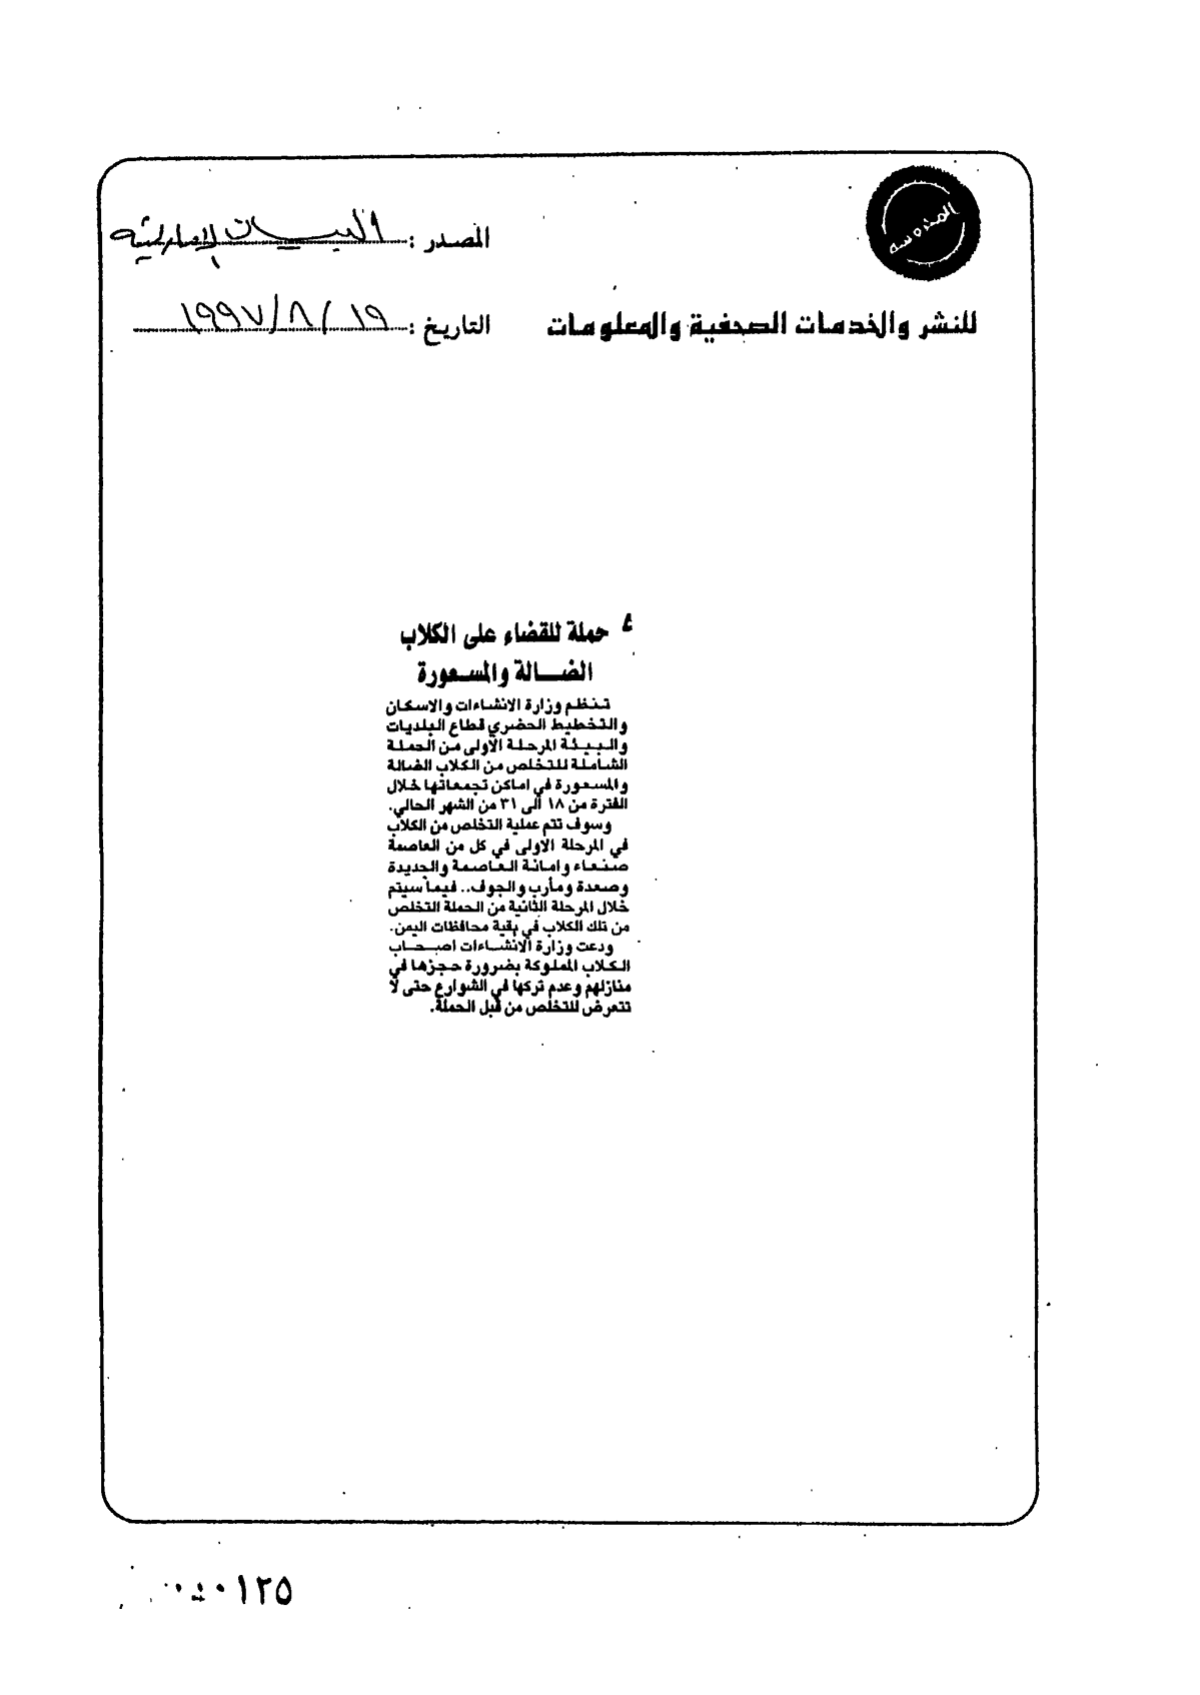 المصدر : البيان الإماراتية
للنشر والخدمات الصحفية والمعلومات
التاريخ : ١٩ / ٨ / ١٩٩٧
حملة للقضاء على الكلاب
الضالة والمسعورة
تنظم وزارة الانشاءات والاسكان
والتخطيط الحضري قطاع البلديات
والبيئة المرحلة الأولى من الحملة
الشاملة للتخلص من الكلاب الضالة
والمسعورة في اماكن تجمعاتها خلال
الفترة من ١٨ الى ٣١ من الشهر الحالي.
وسوف تتم عملية التخلص من الكلاب
في المرحلة الاولى في كل من العاصمة
صنعاء وامانة العاصمة والحديدة
وصعدة ومأرب والجوف.. فيما سيتم
خلال المرحلة الثانية من الحملة التخلص
من تلك الكلاب في بقية محافظات اليمن.
ودعت وزارة الانشاءات اصحاب
الكلاب المملوكة بضرورة حجزها في
منازلهم وعدم تركها في الشوارع حتى لا
تتعرض للتخلص من قبل الحملة.
٠١٢٥